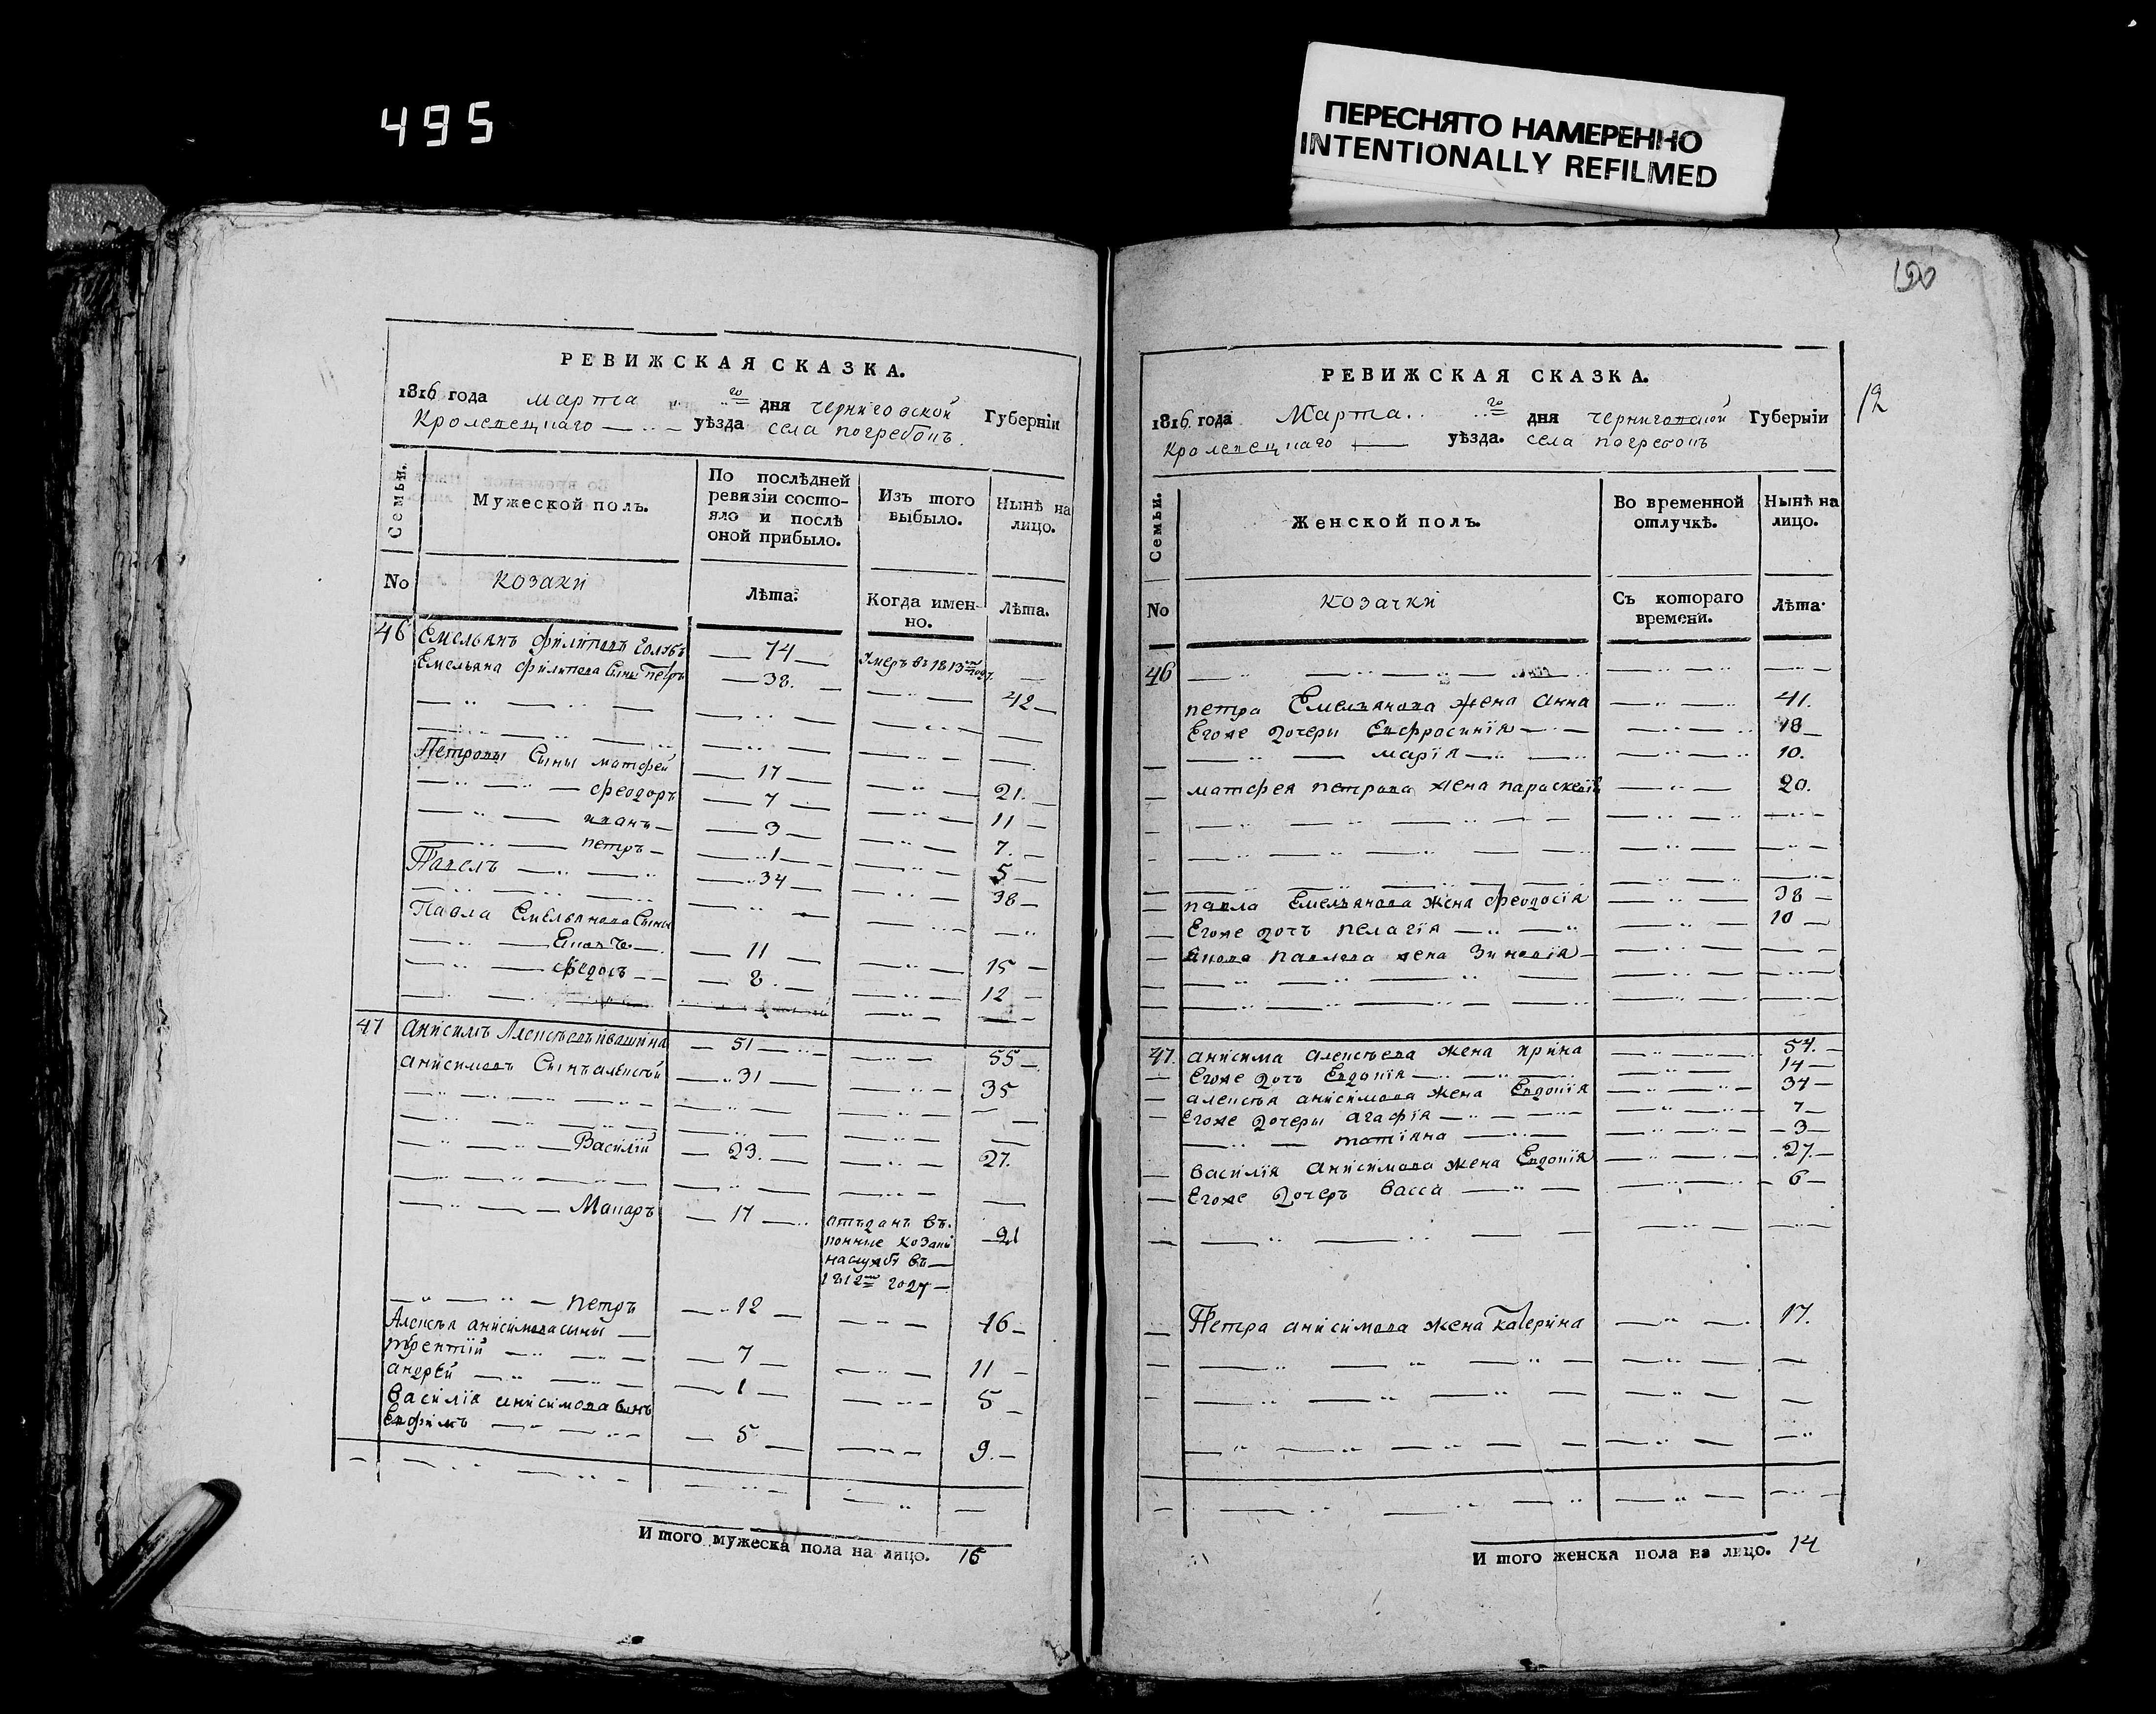 495
ПЕРЕСНЯТО НАМЕРЕННО
INTENTIONALLY REFILMED
РЕВИЖСКАЯ СКАЗКА.
1816 года марта го дня черниговской Губерніи
Кролевецкаго уѣзда села погребокъ.
Семьи.
Мужеской полъ.
По послѣдней
ревизіи состо-
яло и послѣ
оной прибыло.
Изъ того
выбыло.
Нынѣ на
лицо.
No
козаки
Лѣта.
Когда имен-
но.
Лѣта.
46 Емельянъ филиповъ 74 Умеръ въ 1813м году —
Емельяна филипова Сынъ петръ 38. 42
Петровы Сыны матфей 17 21.
феодоръ 7 11
иванъ 3 7.
петръ 1 5
Павелъ 34 38
Павла Емельянова Сыны
11 15
федосъ 8 12
47 анисимъ Алексѣевъ ивашина 51 55
анисимовъ Сынъ алексѣй 31 35
Василій 23. 27.
Макаръ 17 отъданъ въ 21
конные козаки
наслужбу въ
1812м году
петръ 12 16
Алексѣя анисимова сыны
терентій 7 11
андрей 1 5
Василія анисимова Сынъ
Евфимъ 5 9.
И того мужеска пола на лицо. 16
12
РЕВИЖСКАЯ СКАЗКА.
1816 года Марта го дня черниговской Губерніи
Кролевецкаго уѣзда. села погребокъ
Семьи.
Женской полъ.
Во временной
отлучкѣ.
Нынѣ на
лицо.
No
козачки
Съ котораго
времени.
Лѣта
46
петра Емельянова жена анна 41.
Егоже дочери Евфросинія 18
марія 10.
матфея петрова жена параскевія 20.
павла Емельянова жена феодосія 38
Егоже дочъ пелагія 10
павлова жена Зиновія
47. анисима алексѣева жена ирина 54.
Егоже дочъ Евдокія 14
алексѣя анисимова жена Евдокія 34
Егоже дочери агафія 7
татіяна 3
василія анисимова жена Евдокія 27.
Егоже дочеръ васса 6
Петра анисимова жена Катерина 17.
И того женска пола на лицо. 14